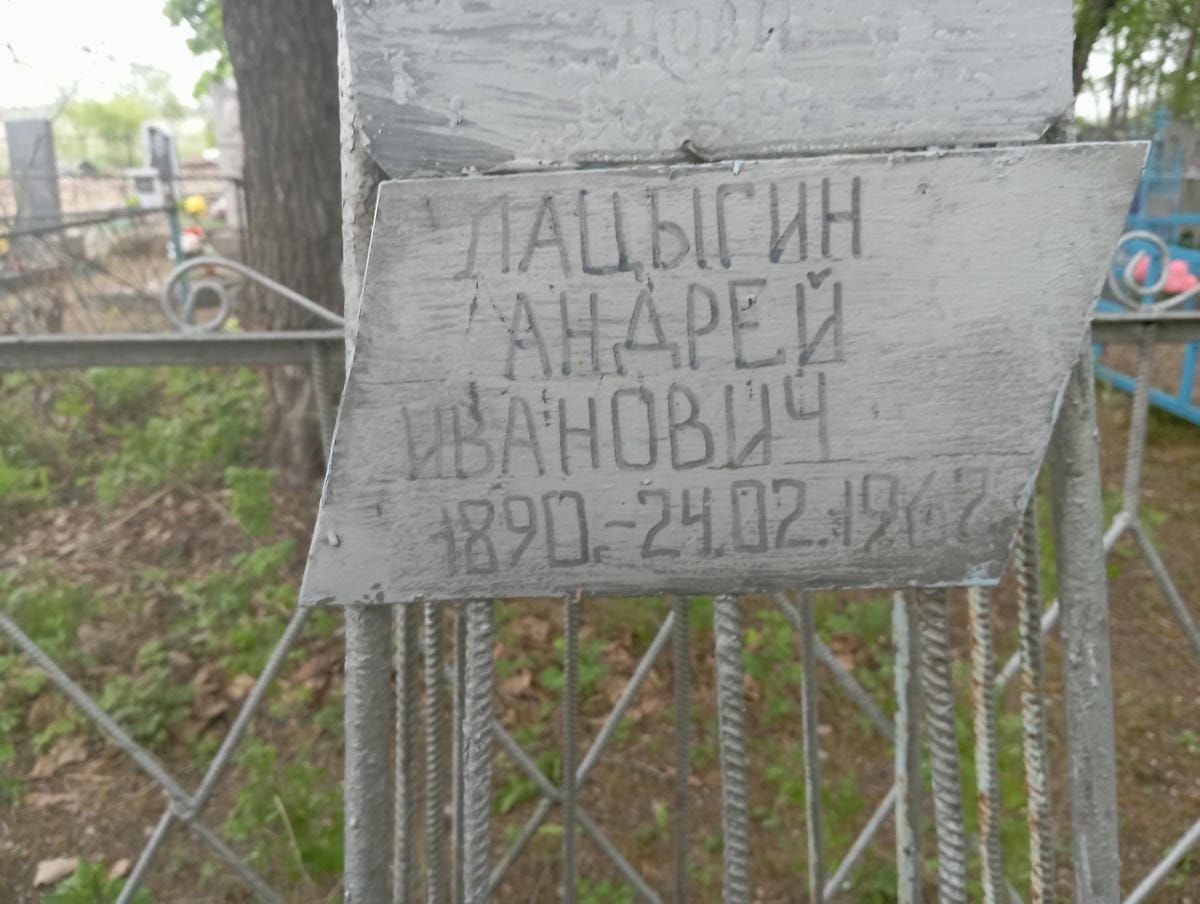 ЛАЦЫГИН
АНДРЕЙ
ИВАНОВИЧ
1890.-24.02.1962